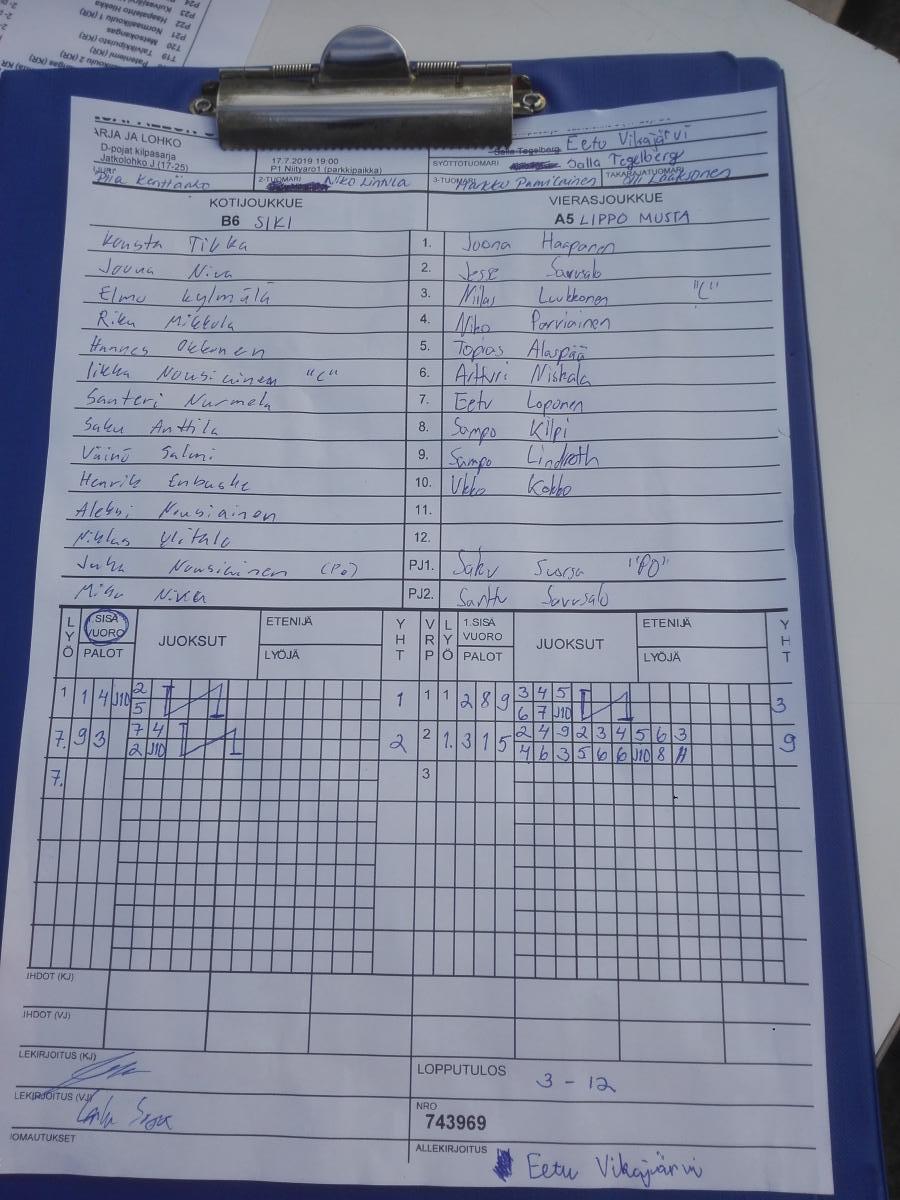 P24
Kuivasjärvi
P23
Haapalehto Hiekka
P22
Normaalikoulu 1 (KR)
P21
Metsokangas
T20
Talvikkipuisto (KR)
T19
Pateniemi (KR)
ARJA JA LOHKO
D-pojat kilpasarja
Jatkolohko J (17-25)
17.7.2019 19:00
P1 Niityaro1 (parkkipaikka)
Salla Tegelberg Eetu Vikajärvi
SYÖTTÖTUOMARI Salla Tegelberg
2-TUOMARI Niko Linnila
3-TUOMARI Markku Parviainen
TAKARAJATUOMARI Olli Laaksonen
KOTIJOUKKUE
B6 SIKI
VIERASJOUKKUE
A5 LIPPO MUSTA
Konsta Tikka 1. Joona Haaponen
Jouna Niva 2. Jesse Savusalo
Elmo Kylmälä 3. Niilas Luukkonen "C"
Riku Mikkola 4. Niko Parviainen
Hannes Okkonen 5. Topias Alaspää
Iikka Nousiainen "C" 6. Artturi Niskala
Santeri Nurmela 7. Eetu Loponen
Saku Anttila 8. Sampo Kilpi
Väinö Salmi 9. Sampo Lindroth
Henrik Enbuske 10. Ukko Kokko
Aleksi Nousiainen 11.
Niklas Ylitalo 12.
Juha Nousiainen (PO) PJ1. Saku Suorsa "PO"
Mika Niva PJ2. Santtu Savusalo
LYÖ 1.SISÄ VUORO PALOT JUOKSUT ETENIJÄ LYÖJÄ YHT VRP LYÖ 1.SISÄ VUORO PALOT JUOKSUT ETENIJÄ LYÖJÄ YHT
1 1 4 J10 2 1 1 1 2 8 9 3 4 5 3
5 6 7 J10
7. 9 3 7 4 2 2 1. 3 1 5 2 4 9 2 3 4 5 6 3 9
2 J10 4 6 3 5 6 6 J10 8 A
7. 3
IHDOT (KJ)
IHDOT (VJ)
LEKIRJOITUS (KJ)
LOPPUTULOS 3 - 12
LEKIRJOITUS (VJ)
NRO
743969
IOMAUTUKSET
ALLEKIRJOITUS
Eetu Vikajärvi